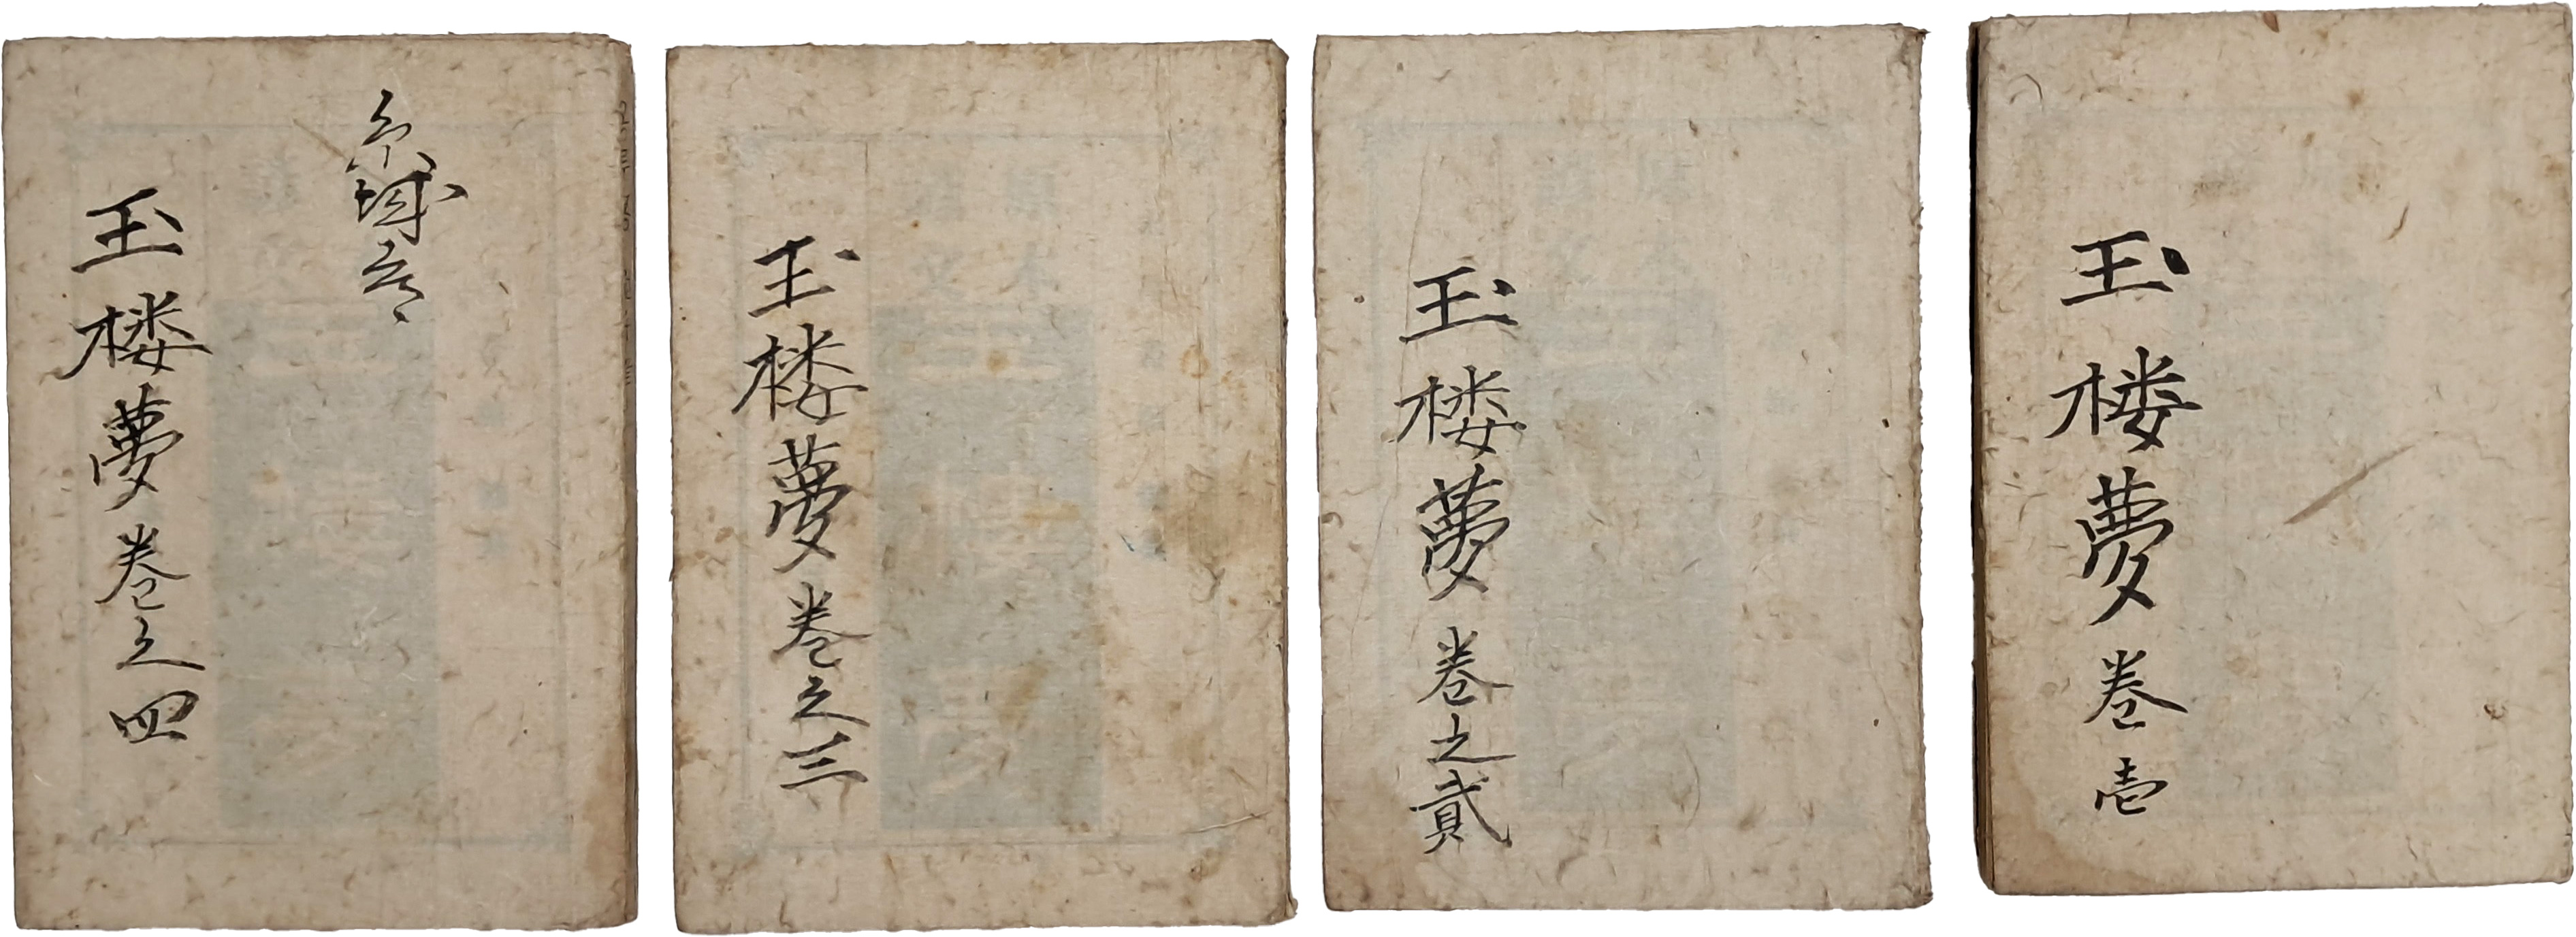 玉楼夢巻壱
玉楼夢巻之貳
玉楼夢巻之三
玉楼夢巻之四